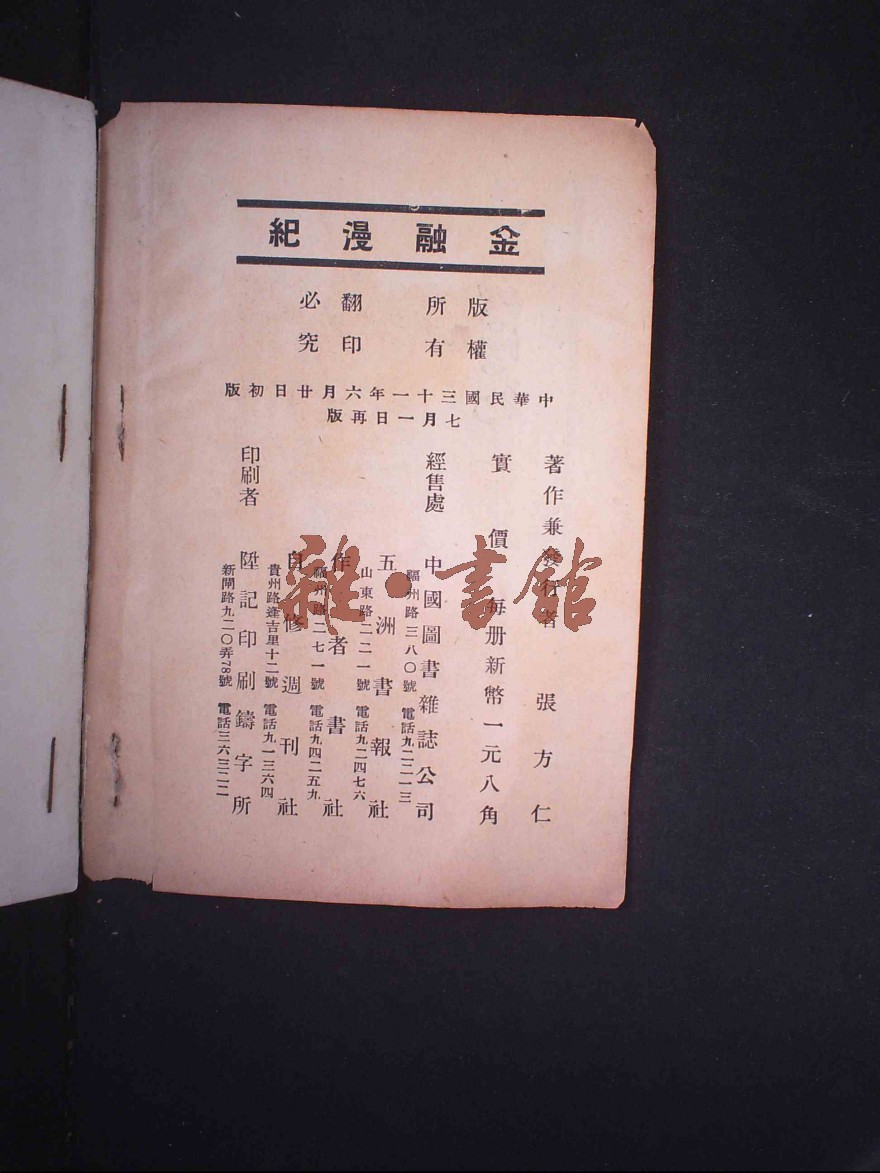 金融漫紀
版權所有
翻印必究
中華民國三十一年六月廿日初版
七月一日再版
著作兼發行者 張方仁
實價 每册新幣一元八角
經售處 中國圖書雜誌公司
福州路三八〇號 電話九二二一三
五洲書報社
山東路二二一號 電話九二四七六
作者書社
福州路二七一號 電話九四二五九
自修週刊社
貴州路逢吉里十二號 電話九一三六四
印刷者 陞記印刷鑄字所
新閘路九二〇弄78號 電話三六三二二
雜·書館